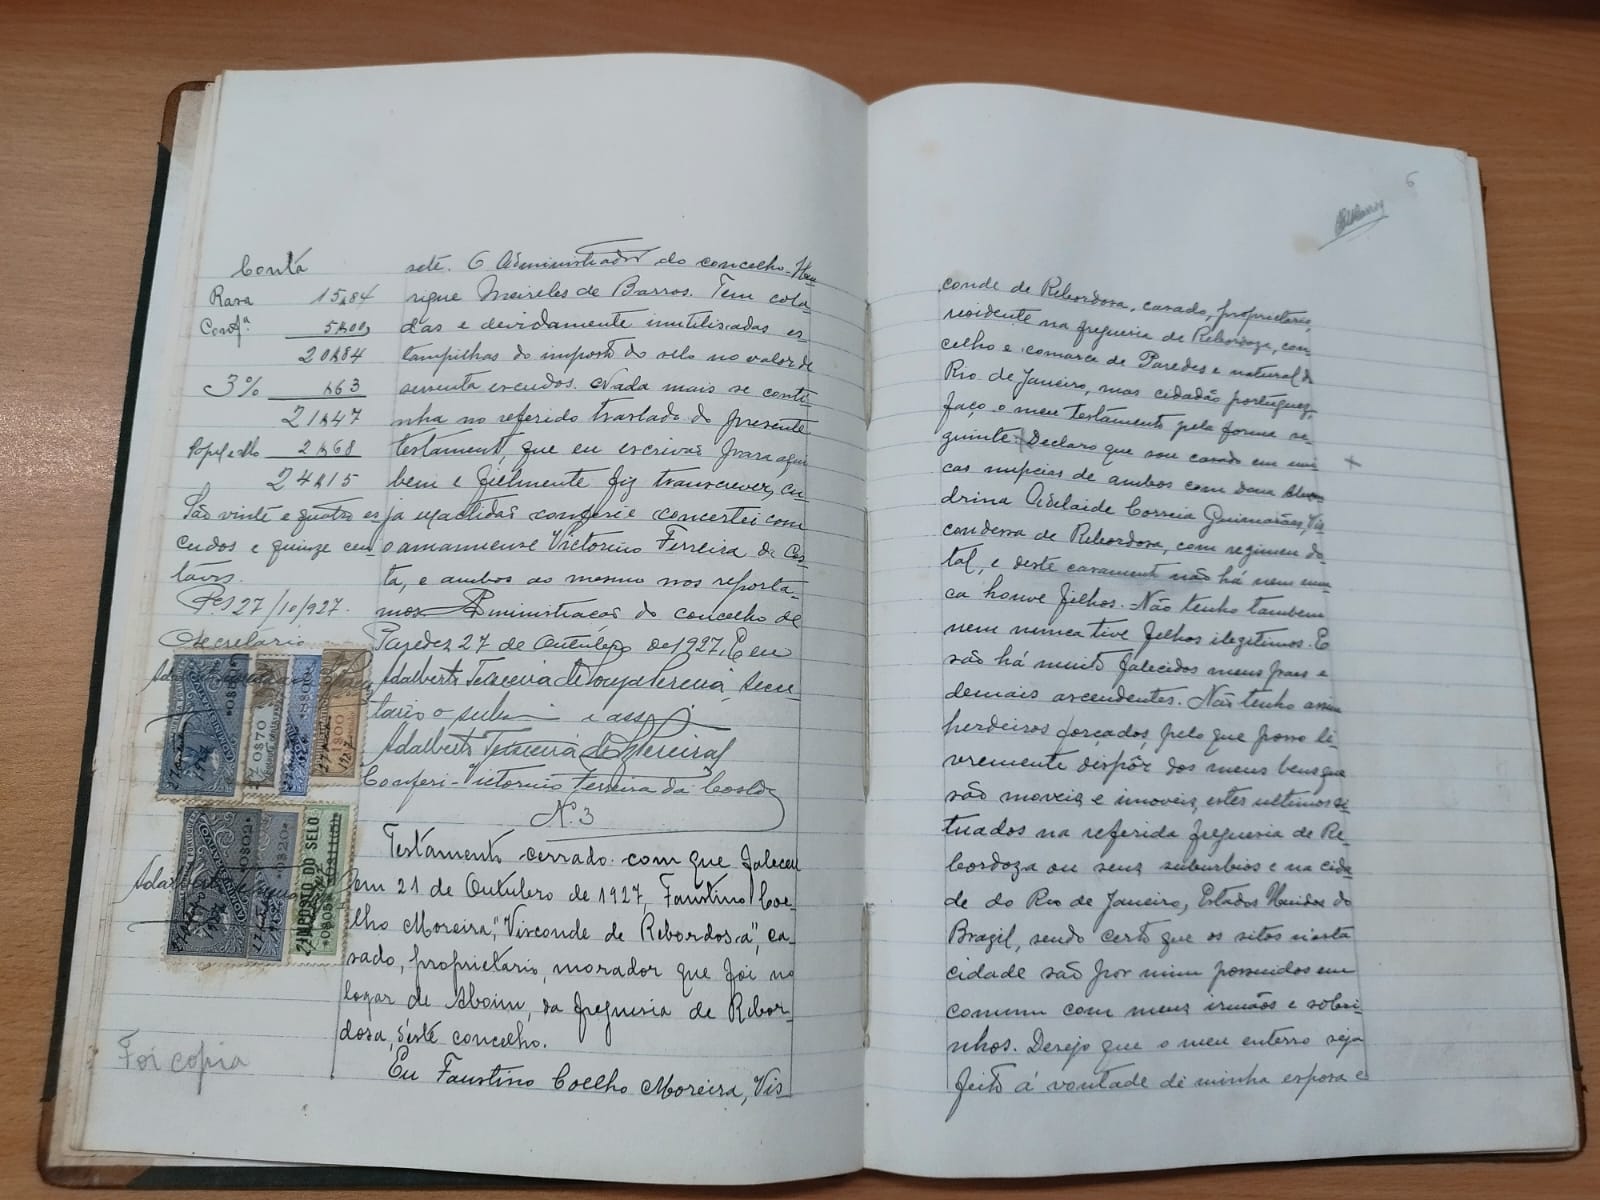 Conta
Rasa 15$84
Confª 5$00
20$84
3% $63
21$47
Papel e sêlo 2$68
24$15
São vinte e quatro es-
cudos e quinze cen-
tavos.
27/10/927.
O Secretario
Foi copia
sete. O Administrador do concelho - Hen-
rique Meireles de Barros. Tem cola-
das e devidamente inutilisadas es-
tampilhas do imposto do selo no valor de
sessenta escudos. Nada mais se conti-
nha no referido traslado do presente
testamento, que eu escrivão para aqui
bem e fielmente fiz transcrever, cu-
ja exactidão conferi e concertei com
o amanuense Victorino Ferreira da Cos-
ta, e ambos ao mesmo nos reporta-
mos. Administração do concelho de
Paredes, 27 de Outubro de 1927. E eu
Adalberto Teixeira de Sousa Pereira, secre-
tario o subs e assig
Adalberto Teixeira de S Pereira
Conferi - Victorino Ferreira da Costa
N.º 3
Testamento cerrado com que faleceu
em 21 de Outubro de 1927, Faustino Coe-
lho Moreira, "Visconde de Rebordosa", ca-
sado, proprietario, morador que foi no
logar de Aboim, da freguesia de Rebor-
dosa, d'este concelho.
Eu Faustino Coelho Moreira, Vis-
IMPOSTO DO SELO
6
conde de Rebordosa, casado, proprietario,
residente na freguesia de Rebordoza, con-
celho e comarca de Paredes e natural do
Rio de Janeiro, mas cidadão portuguez,
faço o meu testamento pela forma se-
guinte: Declaro que sou casado em uni-
cas nupcias de ambos com Dona
drina Adelaide Correia Guimarães, Vis-
condessa de Rebordosa, com regimen do-
tal, e deste casamento não há nem nun-
ca houve filhos. Não tenho tambem
nem nunca tive filhos ilegitimos. E
são há muito falecidos meus paes e
demais ascendentes. Não tenho assim
herdeiros forçados, pelo que posso li-
vremente dispôr dos meus bens que
são moveis e imoveis, estes ultimos si-
tuados na referida freguesia de Re-
bordoza ou seus suburbios e na cida-
de do Rio de Janeiro, Estados Unidos do
Brazil, sendo certo que os sitos n'esta
cidade são por mim possuidos em
comum com meus irmãos e sobri-
nhos. Desejo que o meu enterro seja
feito á vontade de minha esposa e